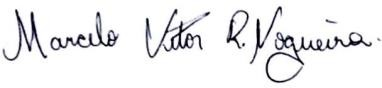 Marcelo Vitor R. Nogueira.